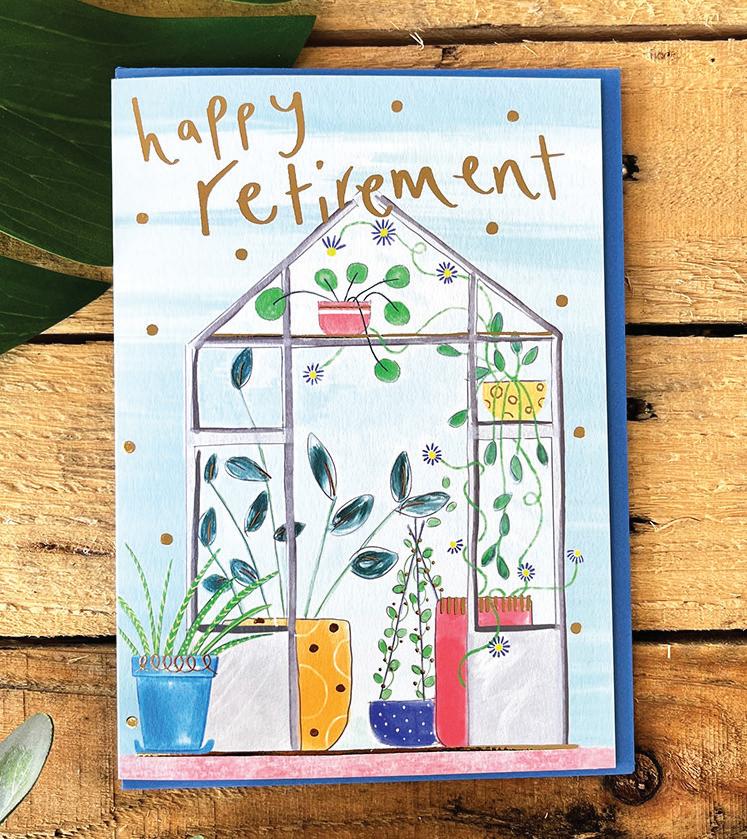 happy
retirement